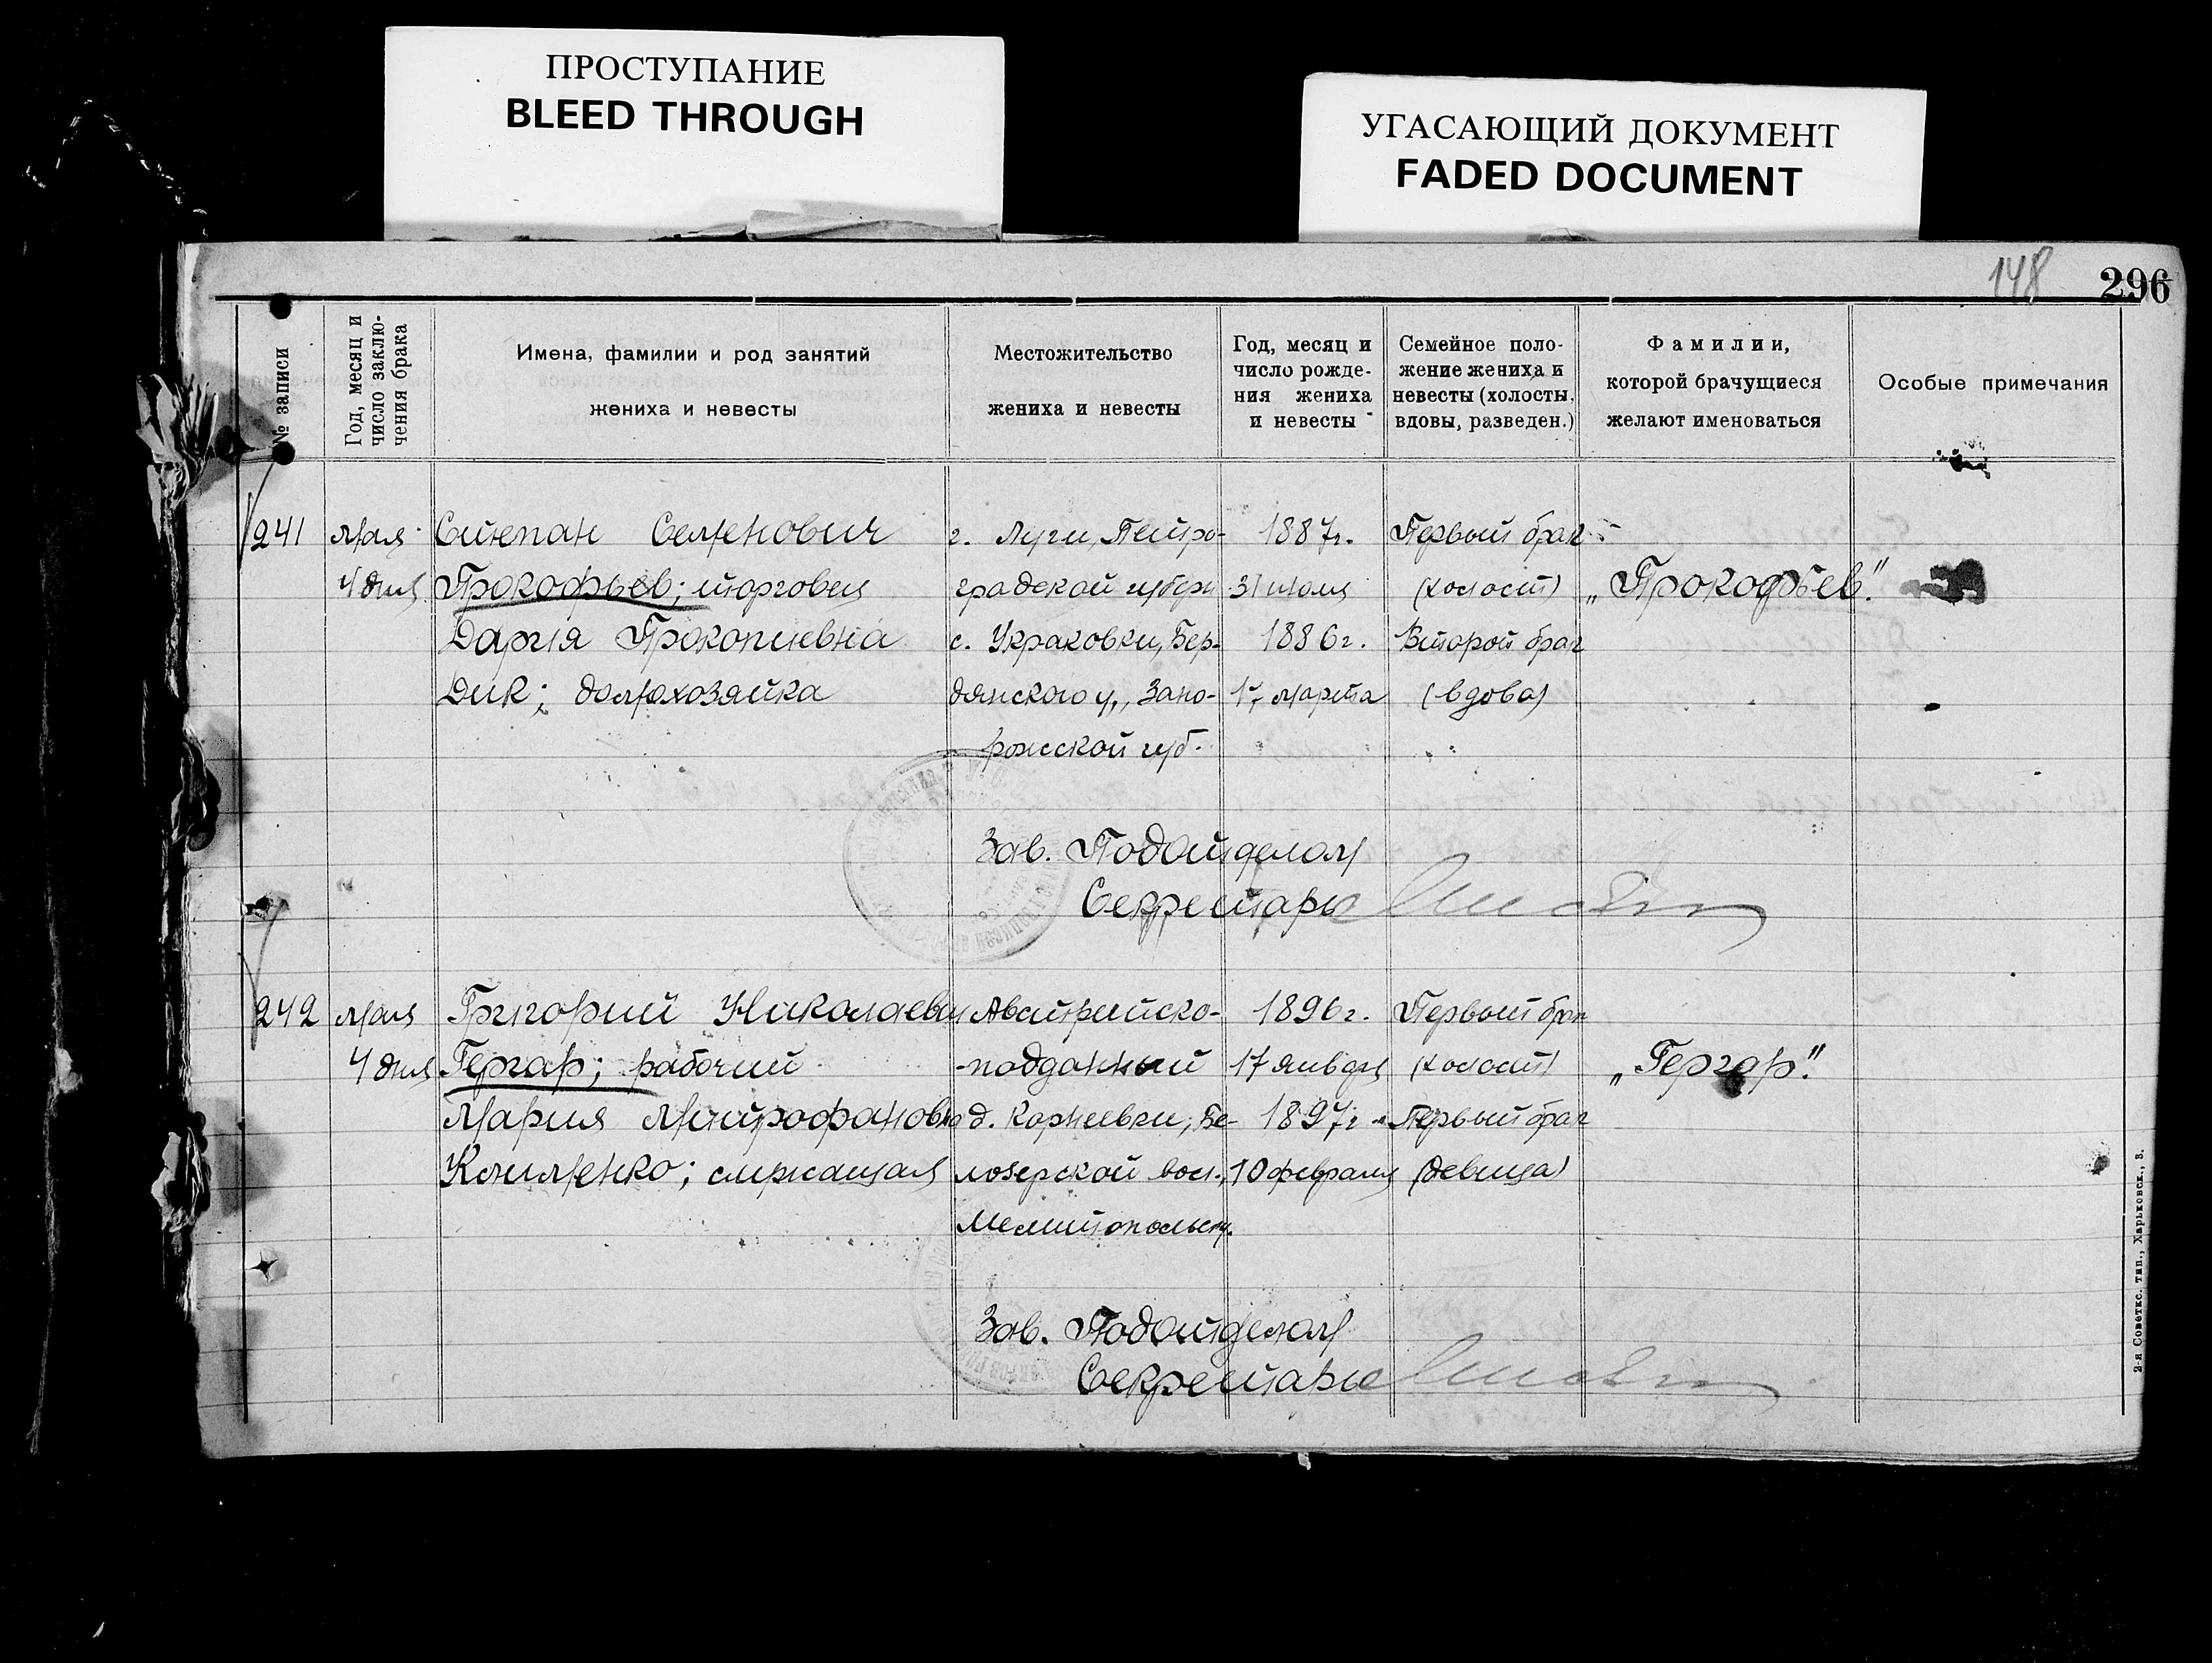 ПРОСТУПАНИЕ
BLEED THROUGH
УГАСАЮЩИЙ ДОКУМЕНТ
FADED DOCUMENT
148
296
№ записи
Год, месяц и
число заклю-
чения брака
Имена, фамилии и род занятий
жениха и невесты
Местожительство
жениха и невесты
Год, месяц и
число рожде-
ния жениха
и невесты
Семейное поло-
жение жениха и
невесты (холосты,
вдовы, разведен.)
Фамилии,
которой брачущиеся
желают именоваться
Особые примечания
241 Мая Степан Семенович г. Луги, Петро- 1887г. Первый брак
4 дня Прокофьев; торговец градской губерн 31 июля (холост) „Прокофьев."
Дария Прокопиевна с. Украковки, Бер- 1886г. Второй брак
Дик; домохозяйка дянского у., Запо- 17 марта (вдова)
рожской губ.
Зав. Подотделом
Секретарь
242 Мая Григорий Николаевич Австрийско- 1896г. Первый брак
4 дня Гергар; рабочий -подданный 17 января (холост) „Гергар."
Мария Митрофановна д. Корнеевки, Бе- 1897г. Первый брак
Клименко; служащая лозерской вол., 10 февраля (девица)
Мелитопольск у.
Зав. Подотделом
Секретарь
2-я Советск. тип., Харьковск., 3.